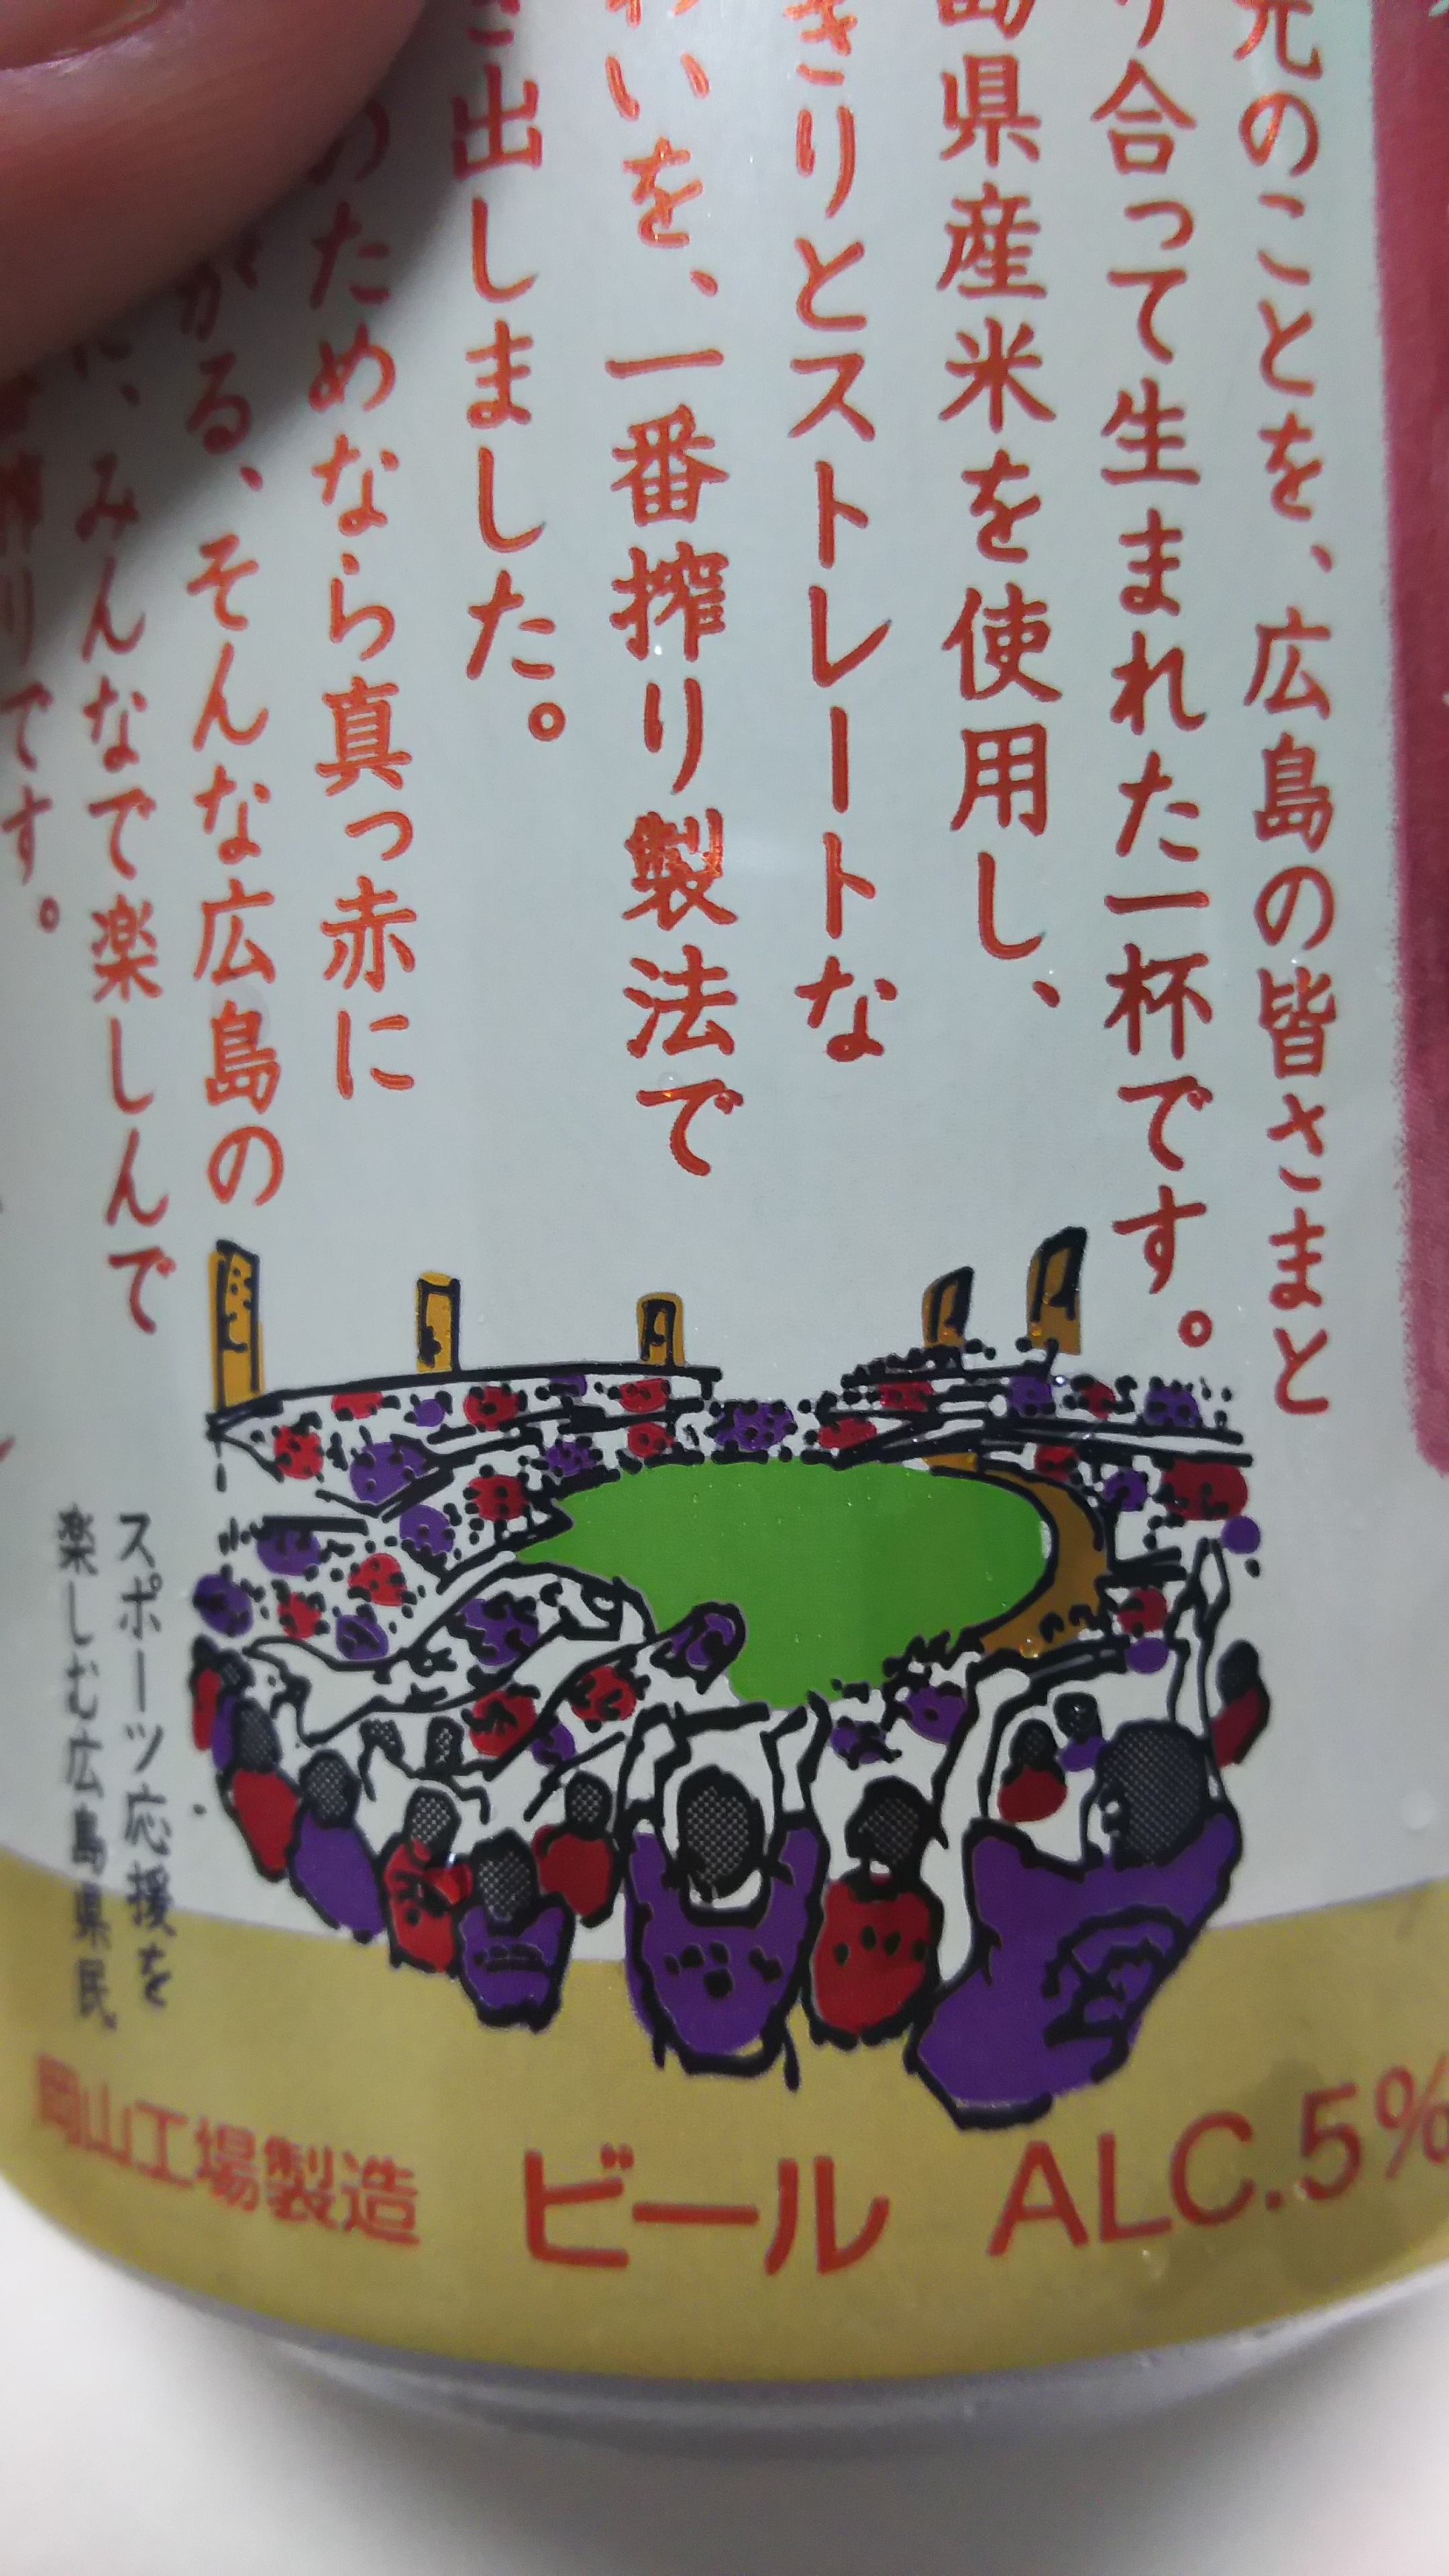 元のことを、広島の皆さまと
り合って生まれた一杯です。
島県産米を使用し、
きりとストレートな
わいを、一番搾り製法で
き出しました。
のためなら真っ赤に
がる、そんな広島の
に、みんなで楽しんで
搾りです。
スポーツ応援を
楽しむ広島県民
岡山工場製造 ビール ALC.5%